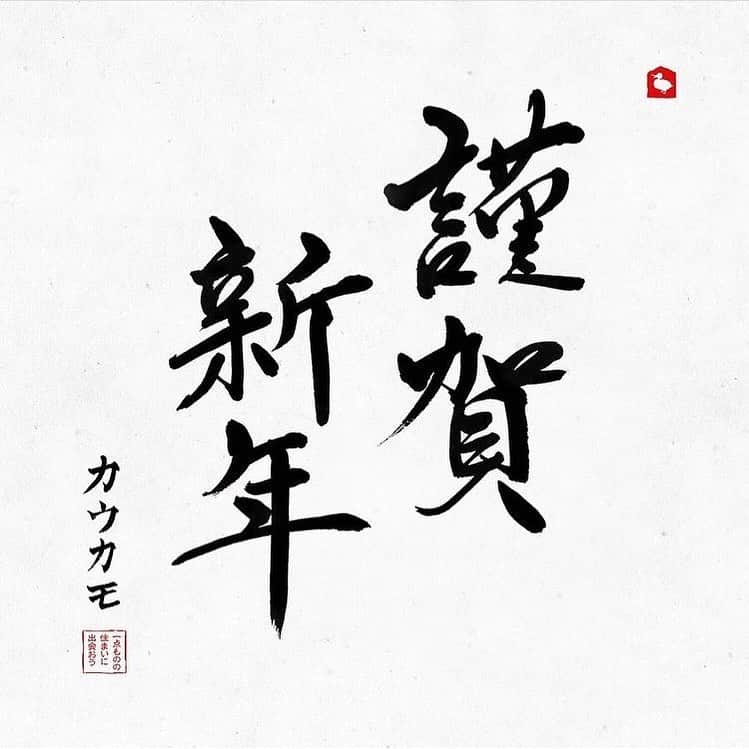 謹賀
新年
カウカモ
一点ものの
住まいに
出会おう